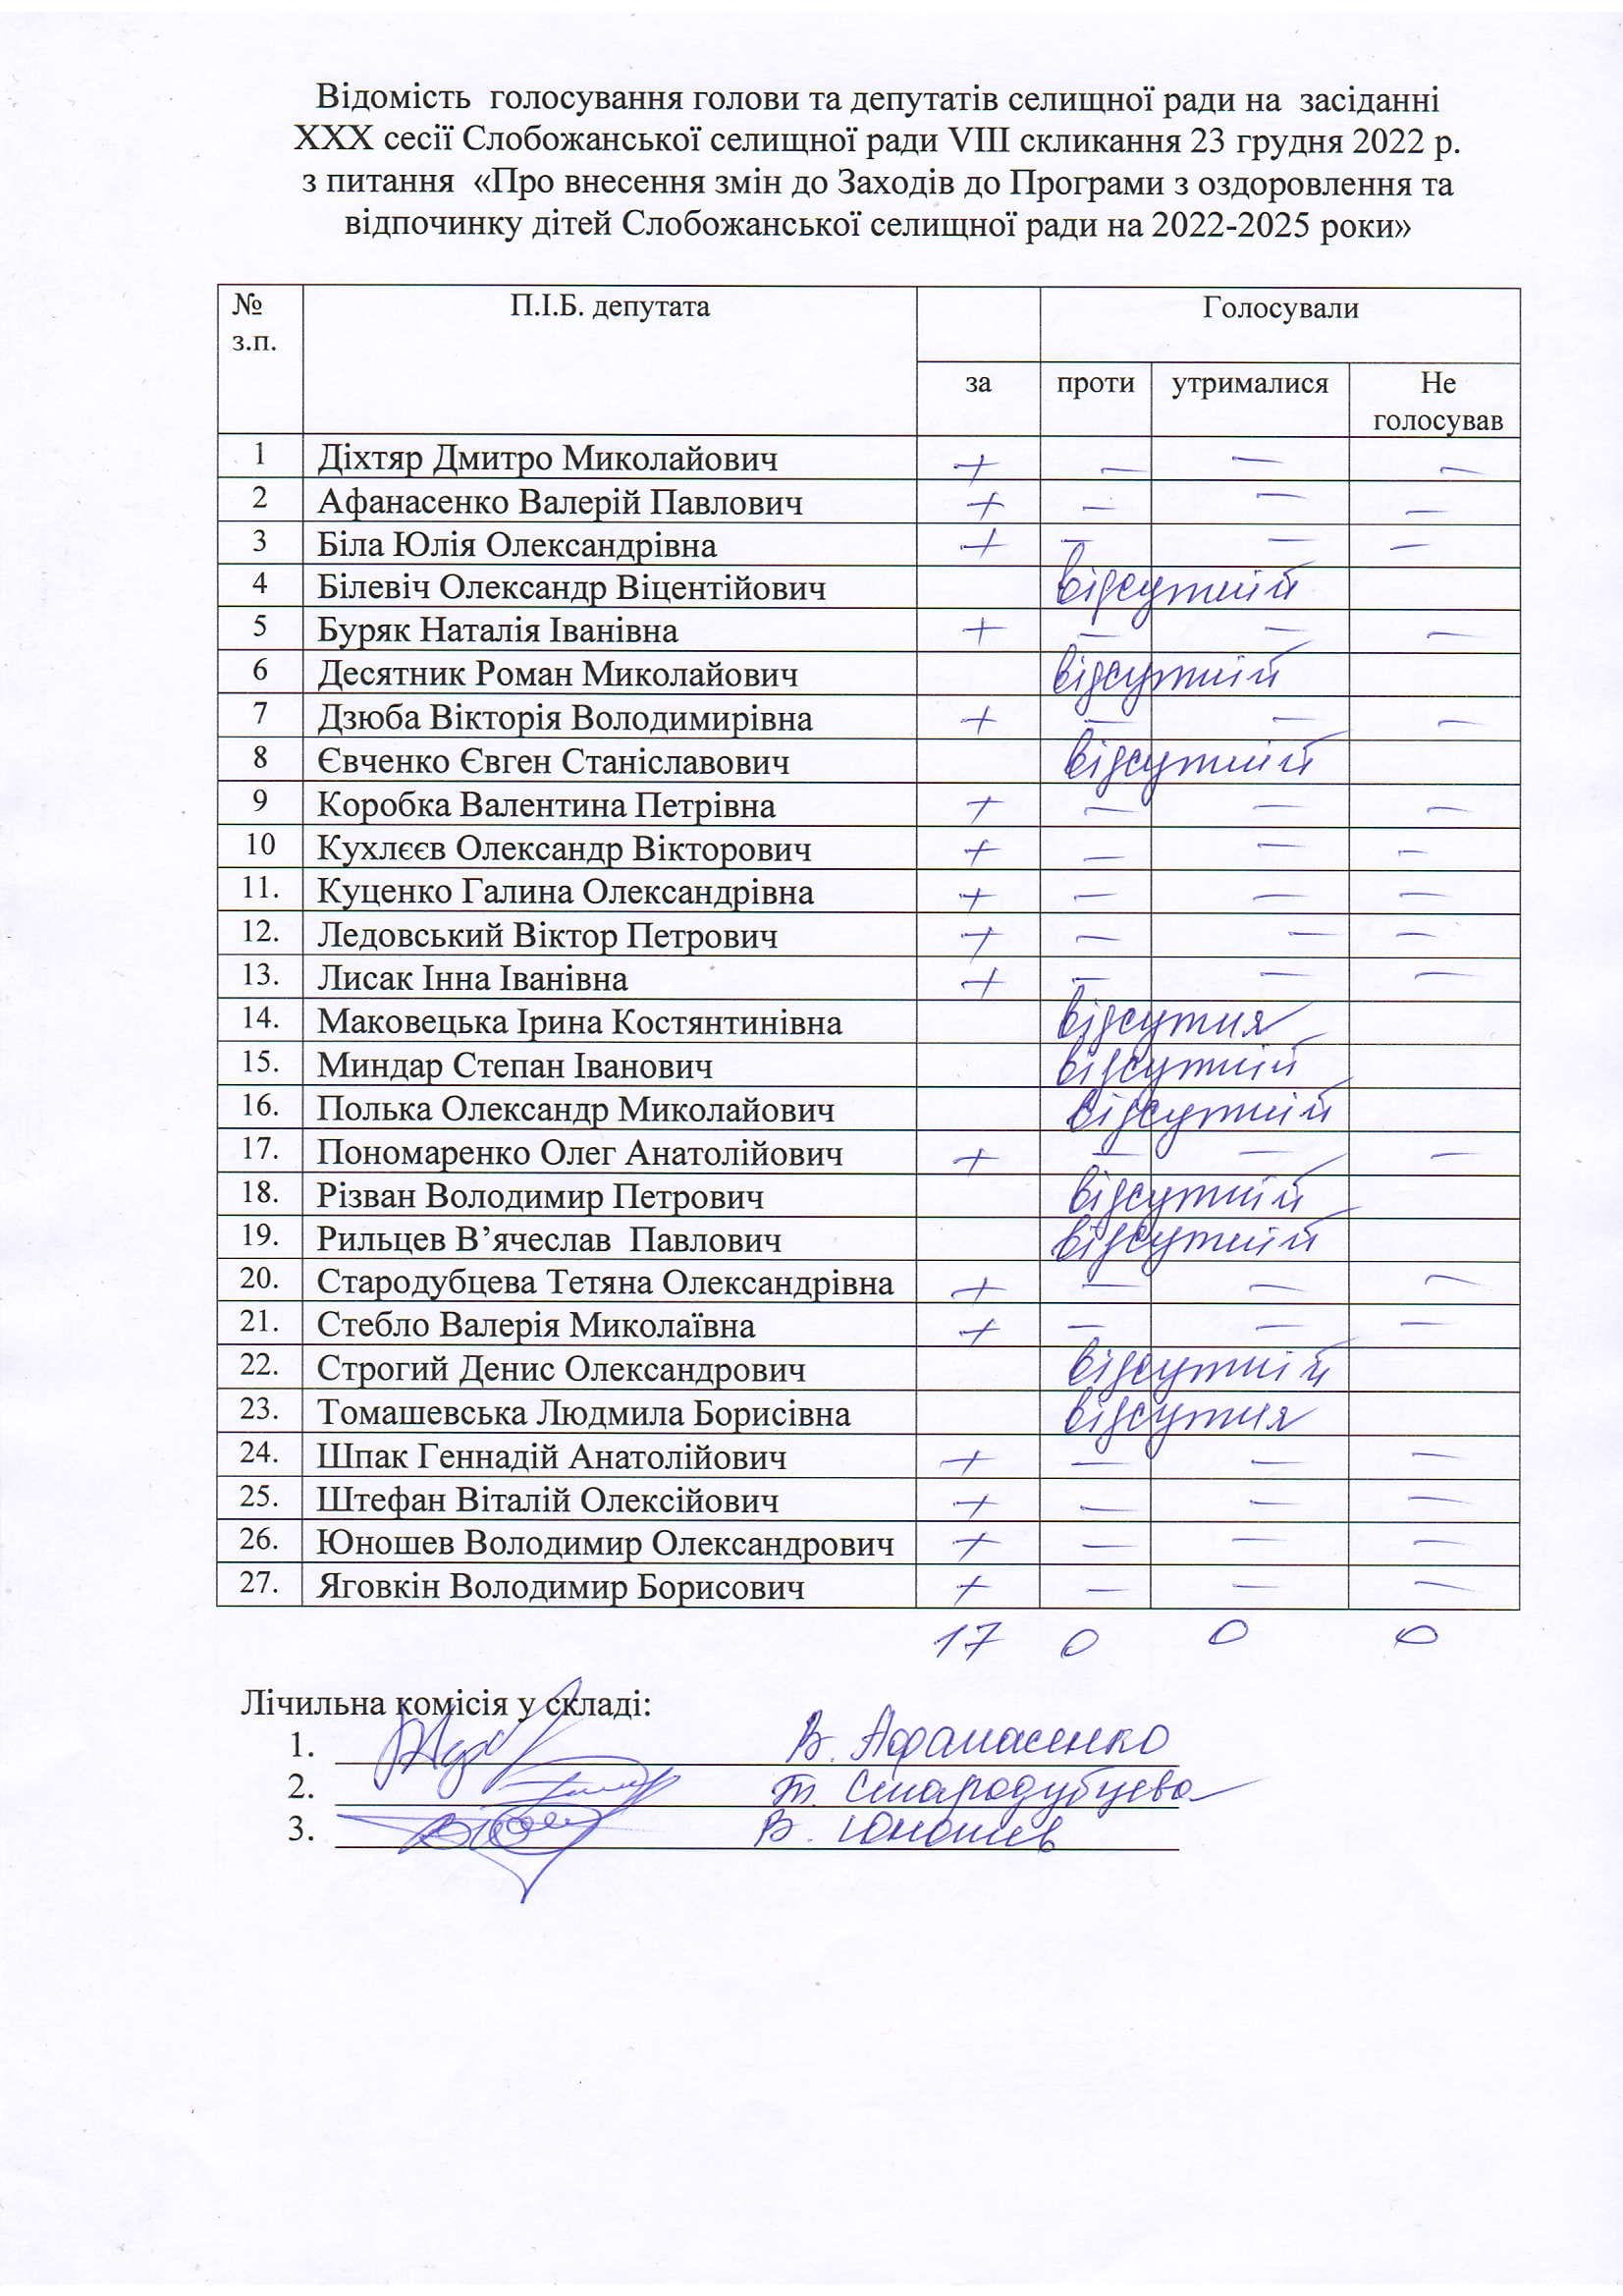 Відомість голосування голови та депутатів селищної ради на засіданні
ХХХ сесії Слобожанської селищної ради VIII скликання 23 грудня 2022 р.
з питання «Про внесення змін до Заходів до Програми з оздоровлення та
відпочинку дітей Слобожанської селищної ради на 2022-2025 роки»
№ з.п. П.І.Б. депутата Голосували
за проти утрималися Не голосував
1 Діхтяр Дмитро Миколайович + — — —
2 Афанасенко Валерій Павлович + — — —
3 Біла Юлія Олександрівна + — — —
4 Білевіч Олександр Віцентійович відсутній
5 Буряк Наталія Іванівна + — — —
6 Десятник Роман Миколайович відсутній
7 Дзюба Вікторія Володимирівна + — — —
8 Євченко Євген Станіславович відсутній
9 Коробка Валентина Петрівна + — — —
10 Кухлєєв Олександр Вікторович + — — —
11. Куценко Галина Олександрівна + — — —
12. Ледовський Віктор Петрович + — — —
13. Лисак Інна Іванівна + — — —
14. Маковецька Ірина Костянтинівна відсутня
15. Миндар Степан Іванович відсутній
16. Полька Олександр Миколайович відсутній
17. Пономаренко Олег Анатолійович + — — —
18. Різван Володимир Петрович відсутній
19. Рильцев В’ячеслав Павлович відсутній
20. Стародубцева Тетяна Олександрівна + — — —
21. Стебло Валерія Миколаївна + — — —
22. Строгий Денис Олександрович відсутній
23. Томашевська Людмила Борисівна відсутня
24. Шпак Геннадій Анатолійович + — — —
25. Штефан Віталій Олексійович + — — —
26. Юношев Володимир Олександрович + — — —
27. Яговкін Володимир Борисович + — — —
17 0 0 0
Лічильна комісія у складі:
1. В. Афанасенко
2. Т. Стародубцева
3. В. Юношев